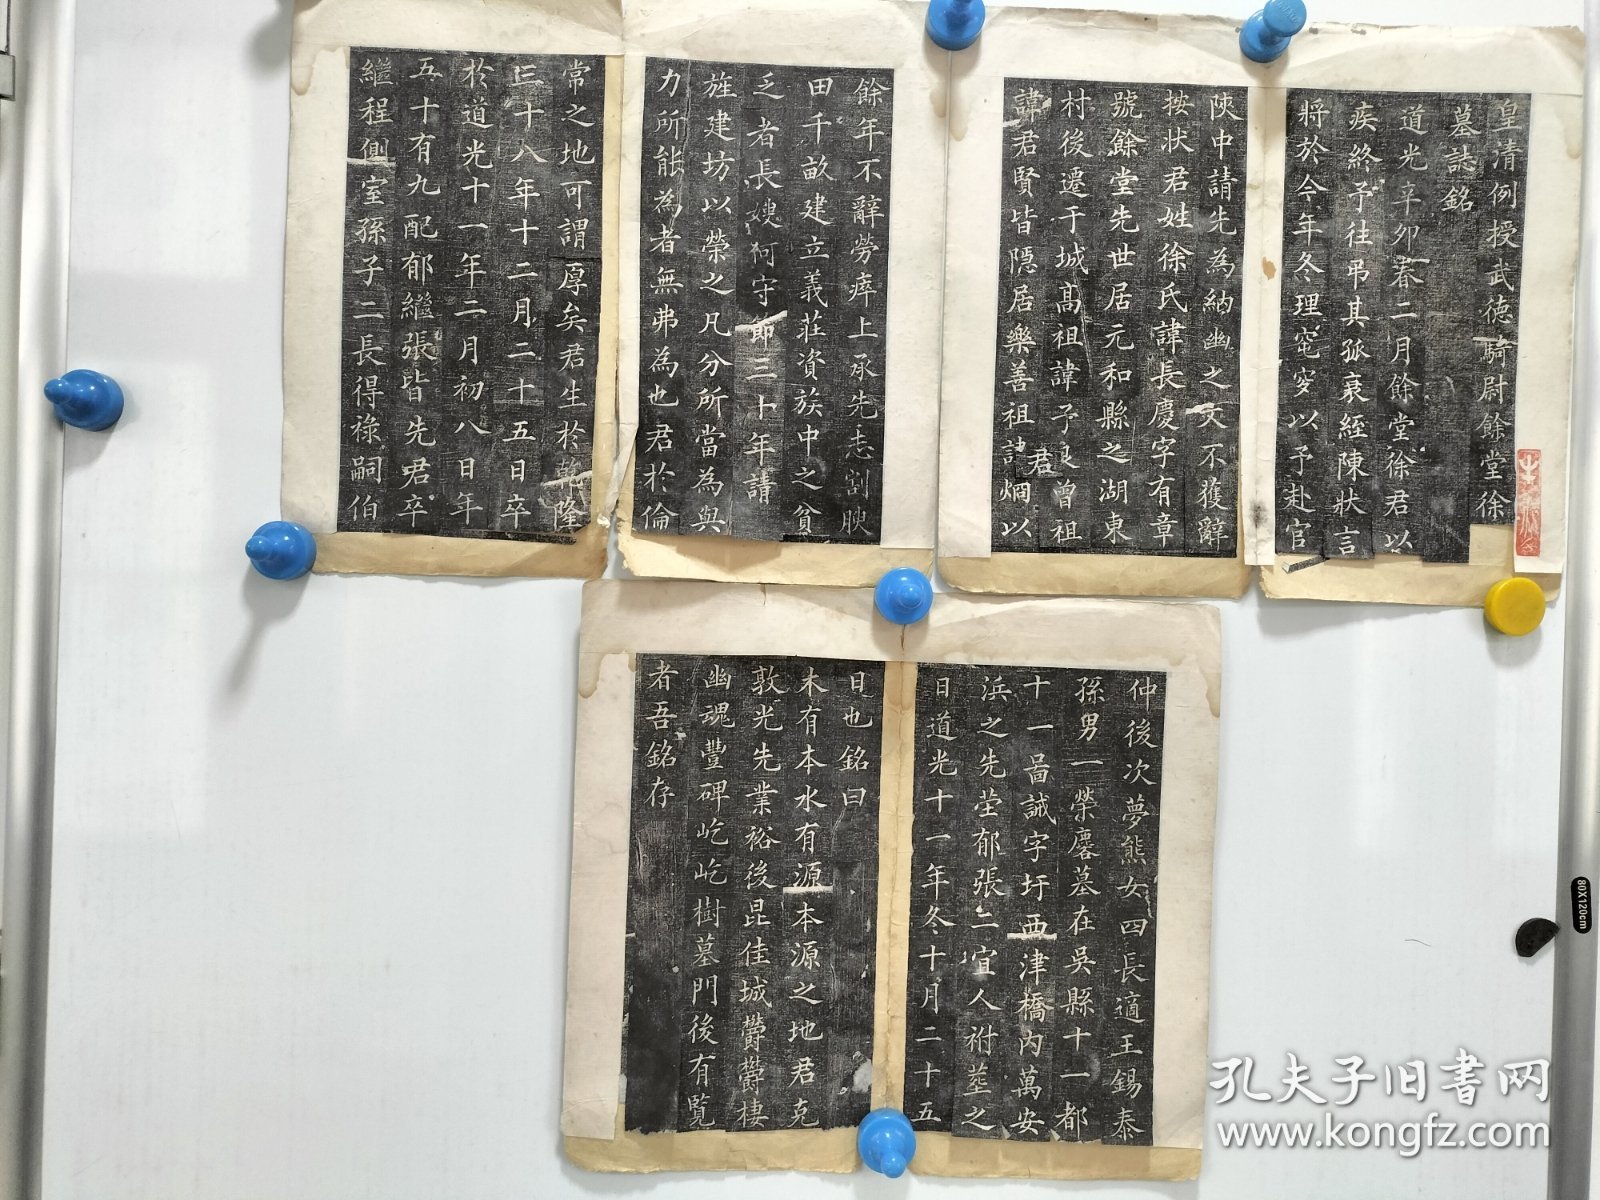 皇清例授武德騎尉餘堂徐
墓誌銘
道光辛卯春二月餘堂徐君以
疾終予往弔其孤衰絰陳狀言
將於今年冬理窀穸以予赴官
陝中請先為納幽之文不獲辭
按状君姓徐氏諱長慶字有章
號餘堂先世居元和縣之湖東
村後遷于城高祖諱予良曾祖
諱君賢皆隱居樂善祖諱君烱以
餘年不辭勞瘁上承先志割腴
田千畝建立義莊資族中之貧
乏者長嫂何守節三十年請
旌建坊以榮之凡分所當為與
力所能為者無弗為也君於倫
常之地可謂厚矣君生於乾隆
三十八年十二月二十五日卒
於道光十一年二月初八日年
五十有九配郁繼張皆先君卒
繼程側室孫子二長得祿嗣伯
仲後次夢熊女四長適王錫泰
孫男一榮麐墓在吳縣十一都
十一啚誠字圩西津橋内萬安
浜之先塋郁張二宜人祔葬之
日道光十一年冬十月二十五
日也銘曰
木有本水有源本源之地君克
敦光先業裕後昆佳城欝欝棲
幽魂豐碑屹屹樹墓門後有覽
者吾銘存
80X120cm
孔夫子旧书网
www.kongfz.com